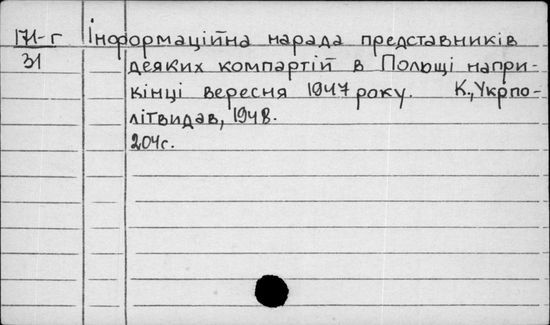 171-г Інформаційна нарада представників
31 деяких компартій в Польщі напри-
кінці вересня 1947 року. К., Укрпо-
літвидав, 1948.
204с.